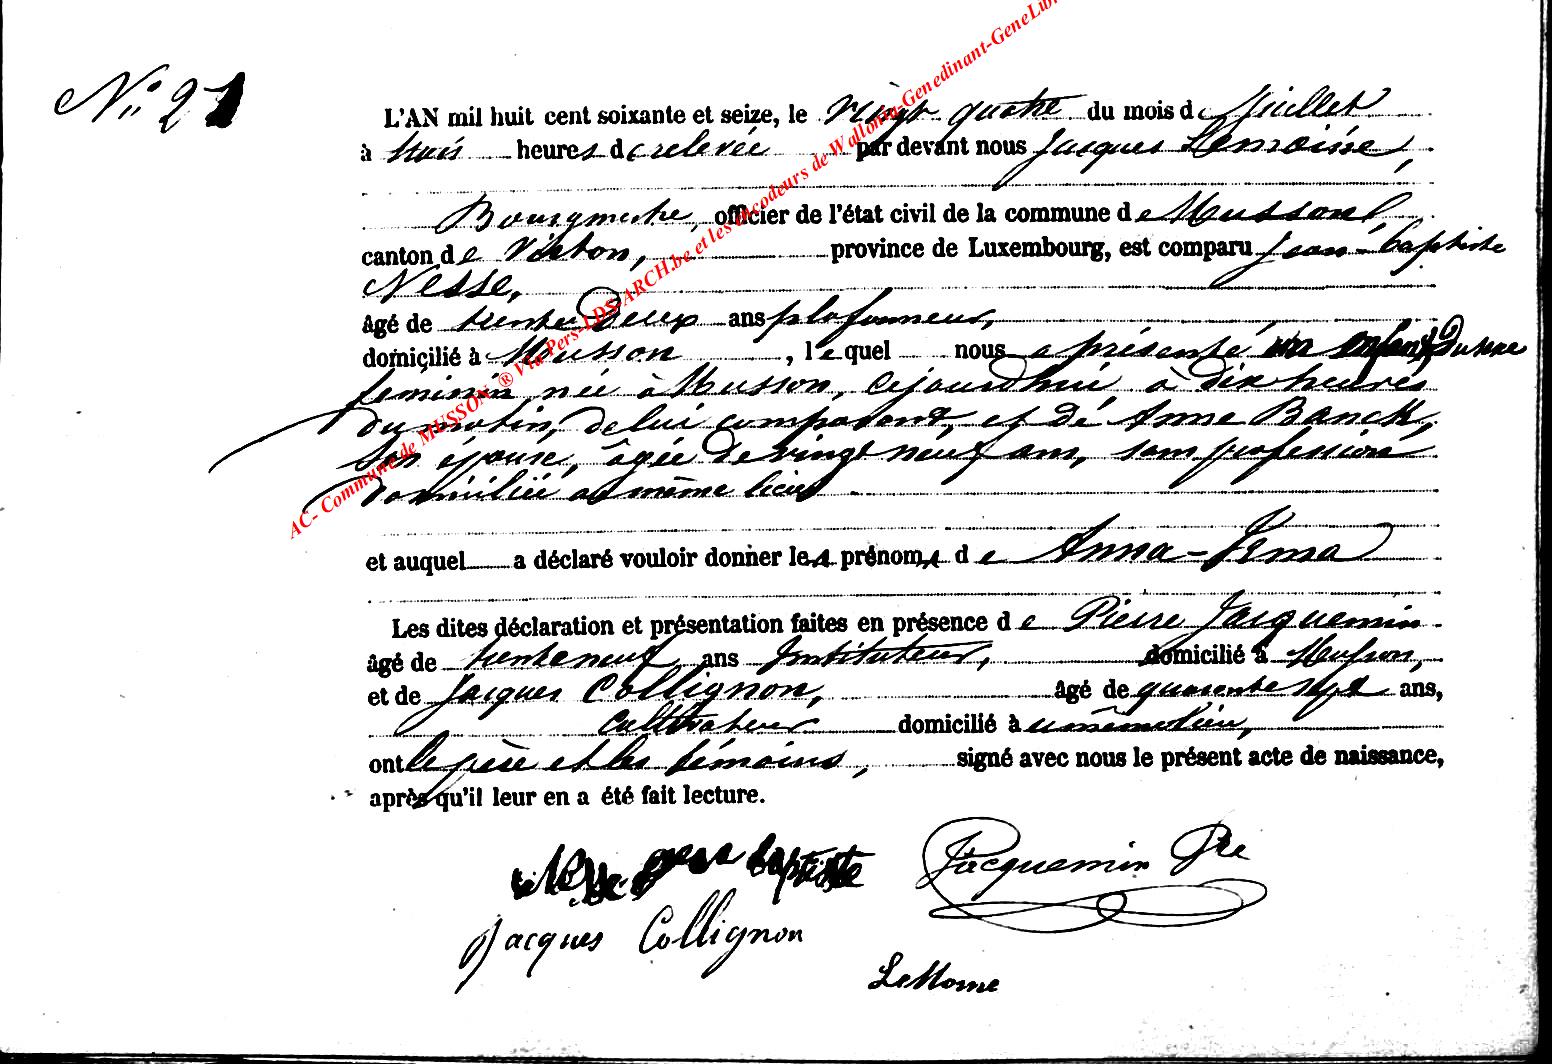 N° 21
L'AN mil huit cent soixante et seize, le vingt quatre du mois de Juillet
à trois heures de relevée par devant nous Jacques Lemoine,
Bourgmestre, officier de l'état civil de la commune de Musson,
canton de Virton, province de Luxembourg, est comparu Jean-Baptiste
Nesse,
âgé de trente deux ans plafonneur,
domicilié à Musson, lequel nous a présenté un enfant, du sexe
feminin née à Musson, cejourd'hui, à dix heures
du matin, de lui comparant, et de Anne Banck,
son épouse, âgée de vingt neuf ans, sans profession
domiciliée au même lieu
et auquel a déclaré vouloir donner les prénoms de Anna-Irma
Les dites déclaration et présentation faites en présence de Pierre Jacquemin
âgé de trente neuf ans Instituteur, domicilié à Musson,
et de Jacques Collignon, âgé de quarante sept ans,
cultivateur domicilié à u même lieu,
ont le père et les témoins, signé avec nous le présent acte de naissance,
après qu'il leur en a été fait lecture.
Nesse Jean baptiste Jacquemin Pre
Jacques Collignon
LeMoine
AC- Commune de MUSSON ® Via Pers-LDS-ARCH.be et les encodeurs de Wallonia-Genedinant-GeneLib